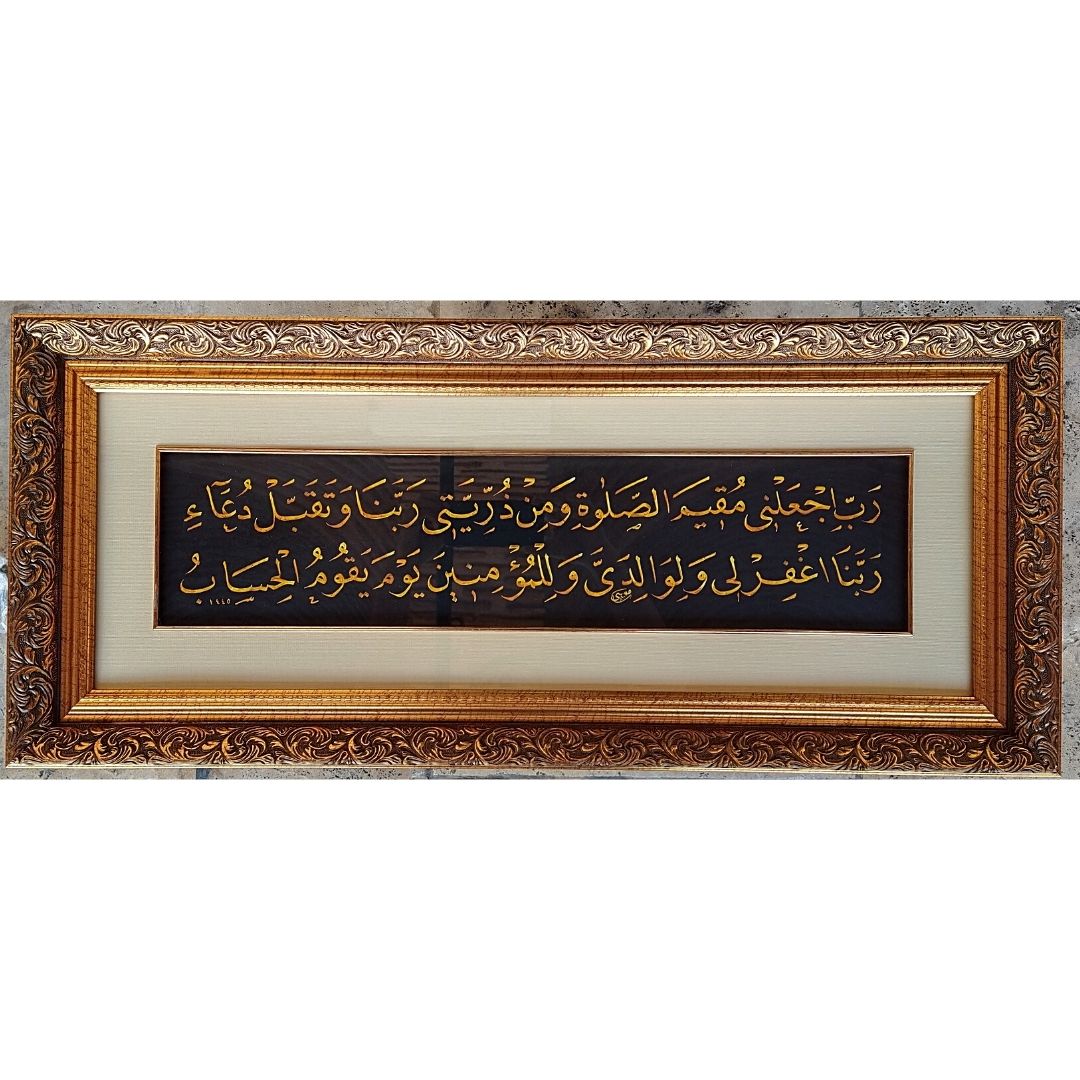 رَبِّ اجْعَلْنِي مُقِيمَ الصَّلٰوةِ وَمِنْ ذُرِّيَّتِي رَبَّنَا وَتَقَبَّلْ دُعَٓاءِ
رَبَّنَا اغْفِرْ لِي وَلِوَالِدَيَّ وَلِلْمُؤْمِنِينَ يَوْمَ يَقُومُ الْحِسَابُ
١٩٤٥